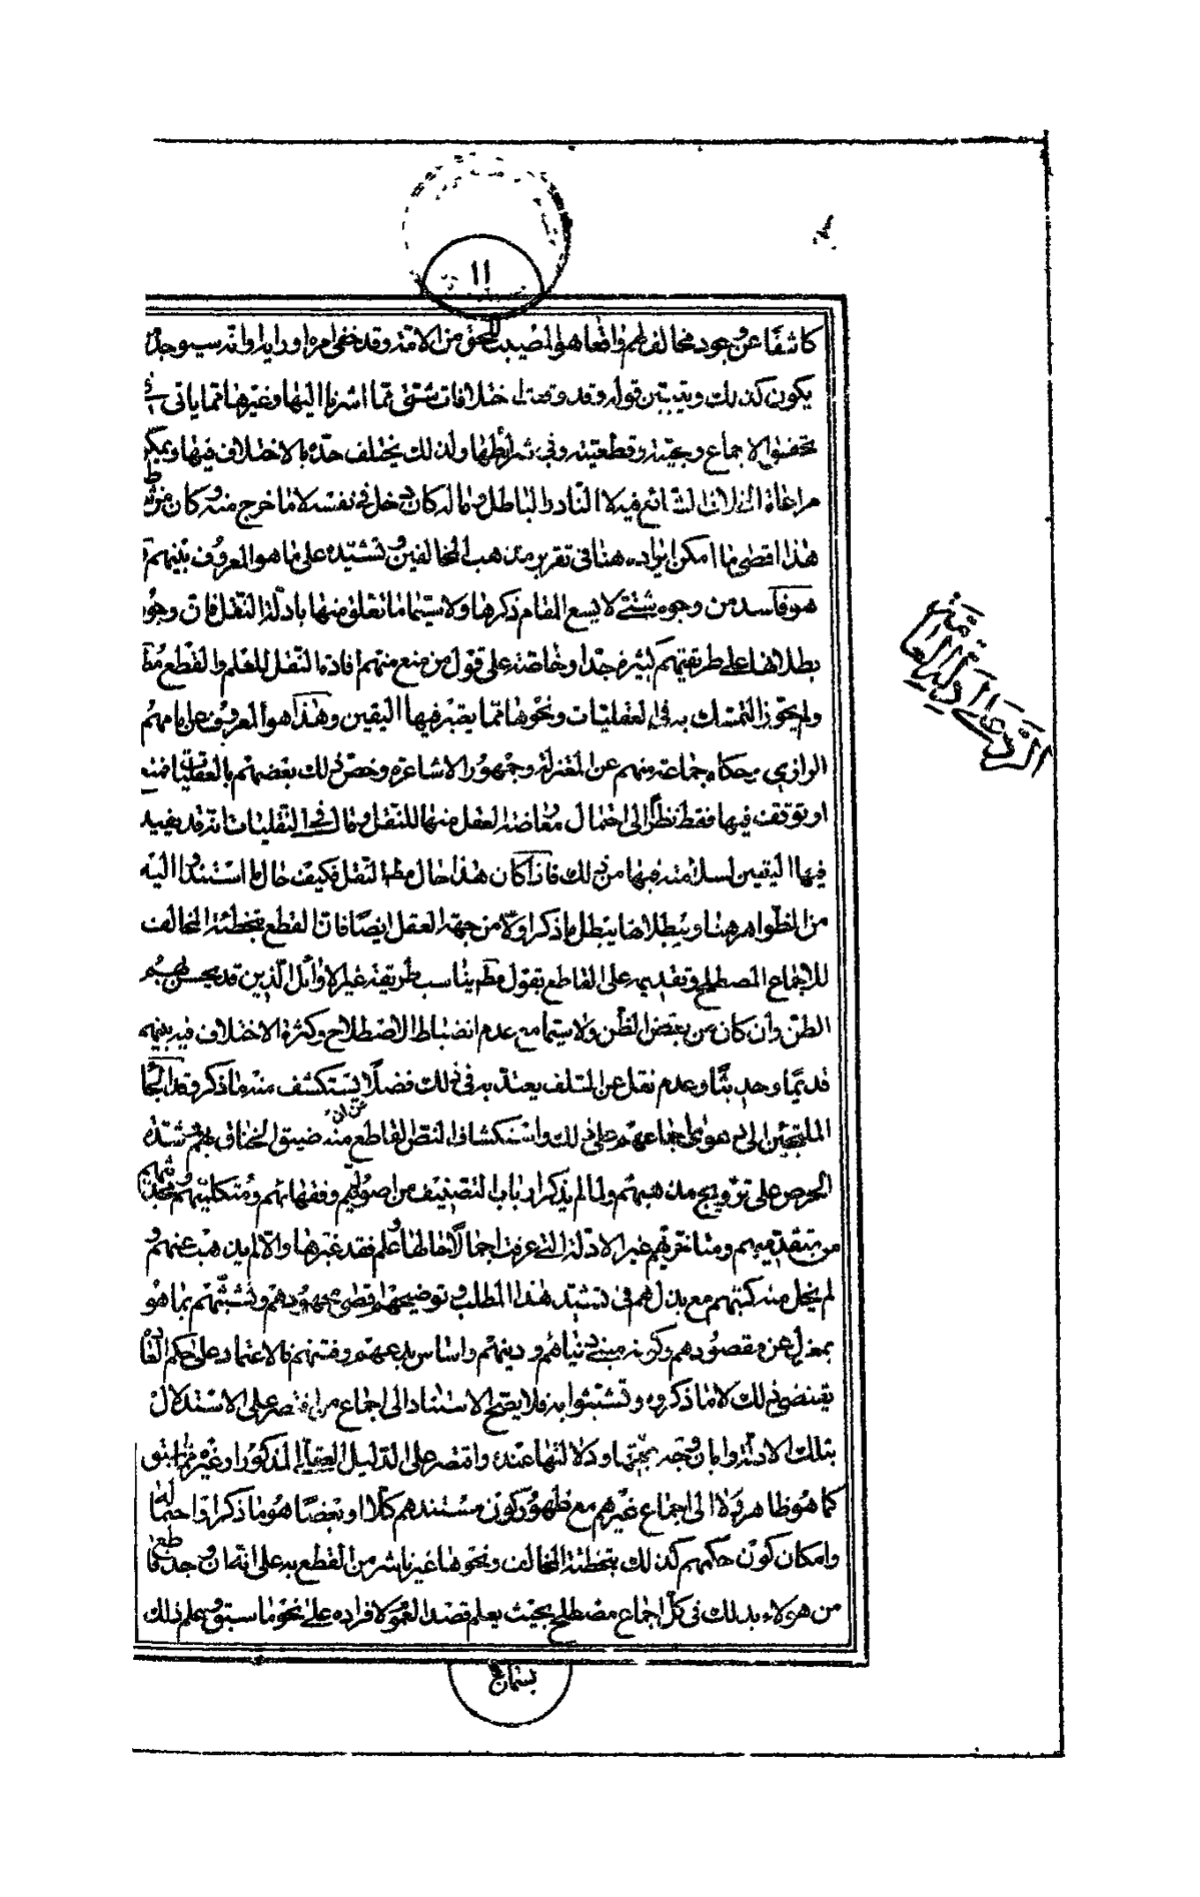 ١١
كاشفا عن وجود مخالف لهم واقعا هو المصيب للحق من الامة وقد خفى امره او رايه او انه سيوجد
يكون كذلك ويتبين قوله وقد وقعت اختلافات شتى مما اشرنا اليها وغيرها مما ياتى
تحقق الاجماع وحجيته وقطعيته وفى شرائطها ولذلك يختلف حده بالاختلاف فيها ويمكن
مراعاة الخلاف الشائع فيه لا النادر الباطل وما له كان دخل فى نفسه لا ما خرج منه وكان من
هذا اقصى ما امكن ايراده هنا فى تقرير مذهب المخالفين وتشييده على ما هو المعروف بينهم
هو فاسد من وجوه شتى لا يسع المقام ذكرها ولا سيما ما تعلق منها بادلة النقل فان وجوه
بطلانها على طريقتهم كثيرة جدا وخاصة على قول من منع منهم افادة النقل للعلم والقطع
ولم يجوز التمسك به فى العقليات ونحوها مما يعتبر فيها اليقين وهذا هو المعروف عن امامهم
الرازى وحكاه جماعة منهم عن المعتزلة وجمهور الاشاعرة وخص ذلك بعضهم بالعقليات فمنع
او توقف فيها فقط نظرا الى احتمال معارضة العقل منها للنقل وقال فى النقليات انه قد يفيد
فيها اليقين لسلامته فيها من ذلك فاذا كان هذا حال النقل فكيف حال ما استندوا اليه
من الظواهر هنا وببطلانها يبطل ما ذكر اولا من جهة العقل ايضا فان القطع بتخطئة المخالف
للاجماع المصطلح وتقديمه على القاطع بقول يناسب طريقة غير الاوائل الذين قد يحسن بهم
الظن وان كان من بعض الظن ولا سيما مع عدم انضباط الاصطلاح وكثرة الاختلاف فيه بينهم
قديما وحديثا وعدم نقل عن السلف يعتد به فى ذلك فضلا عن ان يستكشف منه ما ذكر وقد
الملتجئين الى دعوى اجماعهم على ذلك واستكشاف النص القاطع منه ضيق الخناق بهم وشدة
الحرص على ترويج مذهبهم ولما لم يذكر ارباب التصنيف من اصوليهم وفقهائهم ومتكلميهم ومحدثيهم
من متقدميهم ومتاخريهم غير الادلة التى عرفت اجمالا حالها وعلم فقد غيرها والا لم يذهب عنهم و
لم يخل منه كتبهم مع بذلهم فى تشييد هذا المطلب وتوضيحه اقصى مجهودهم وتشبثهم بما هو
بمعزل عن مقصودهم وكونه مبنى دنياهم ودينهم واساس بدعهم وفتنهم فالاعتماد على حكم العادة
يقتضى ذلك لا ما ذكروه وتشبثوا به فلا يصح الاستناد الى اجماع من اقتصر على الاستدلال
بتلك الادلة وابان وجه حجيتها ودلالتها عنده واقتصر على الدليل العقلى المذكور او غيره مما سبق
كما هو ظاهر ولا الى اجماع غيرهم مع ظهور كون مستندهم كلا او بعضا هو ما ذكر او احتماله
وامكان كون حكمهم كذلك بتخطئة المخالف ونحوها غير ناشر من القطع به على انه ان وجد قاطع
من هؤلاء بذلك فى كل اجماع مصطلح بحيث يعلم قصد العموم لافراده على نحو ما سبق وعلم ذلك
الرد على ادلة العامة
بتمامه